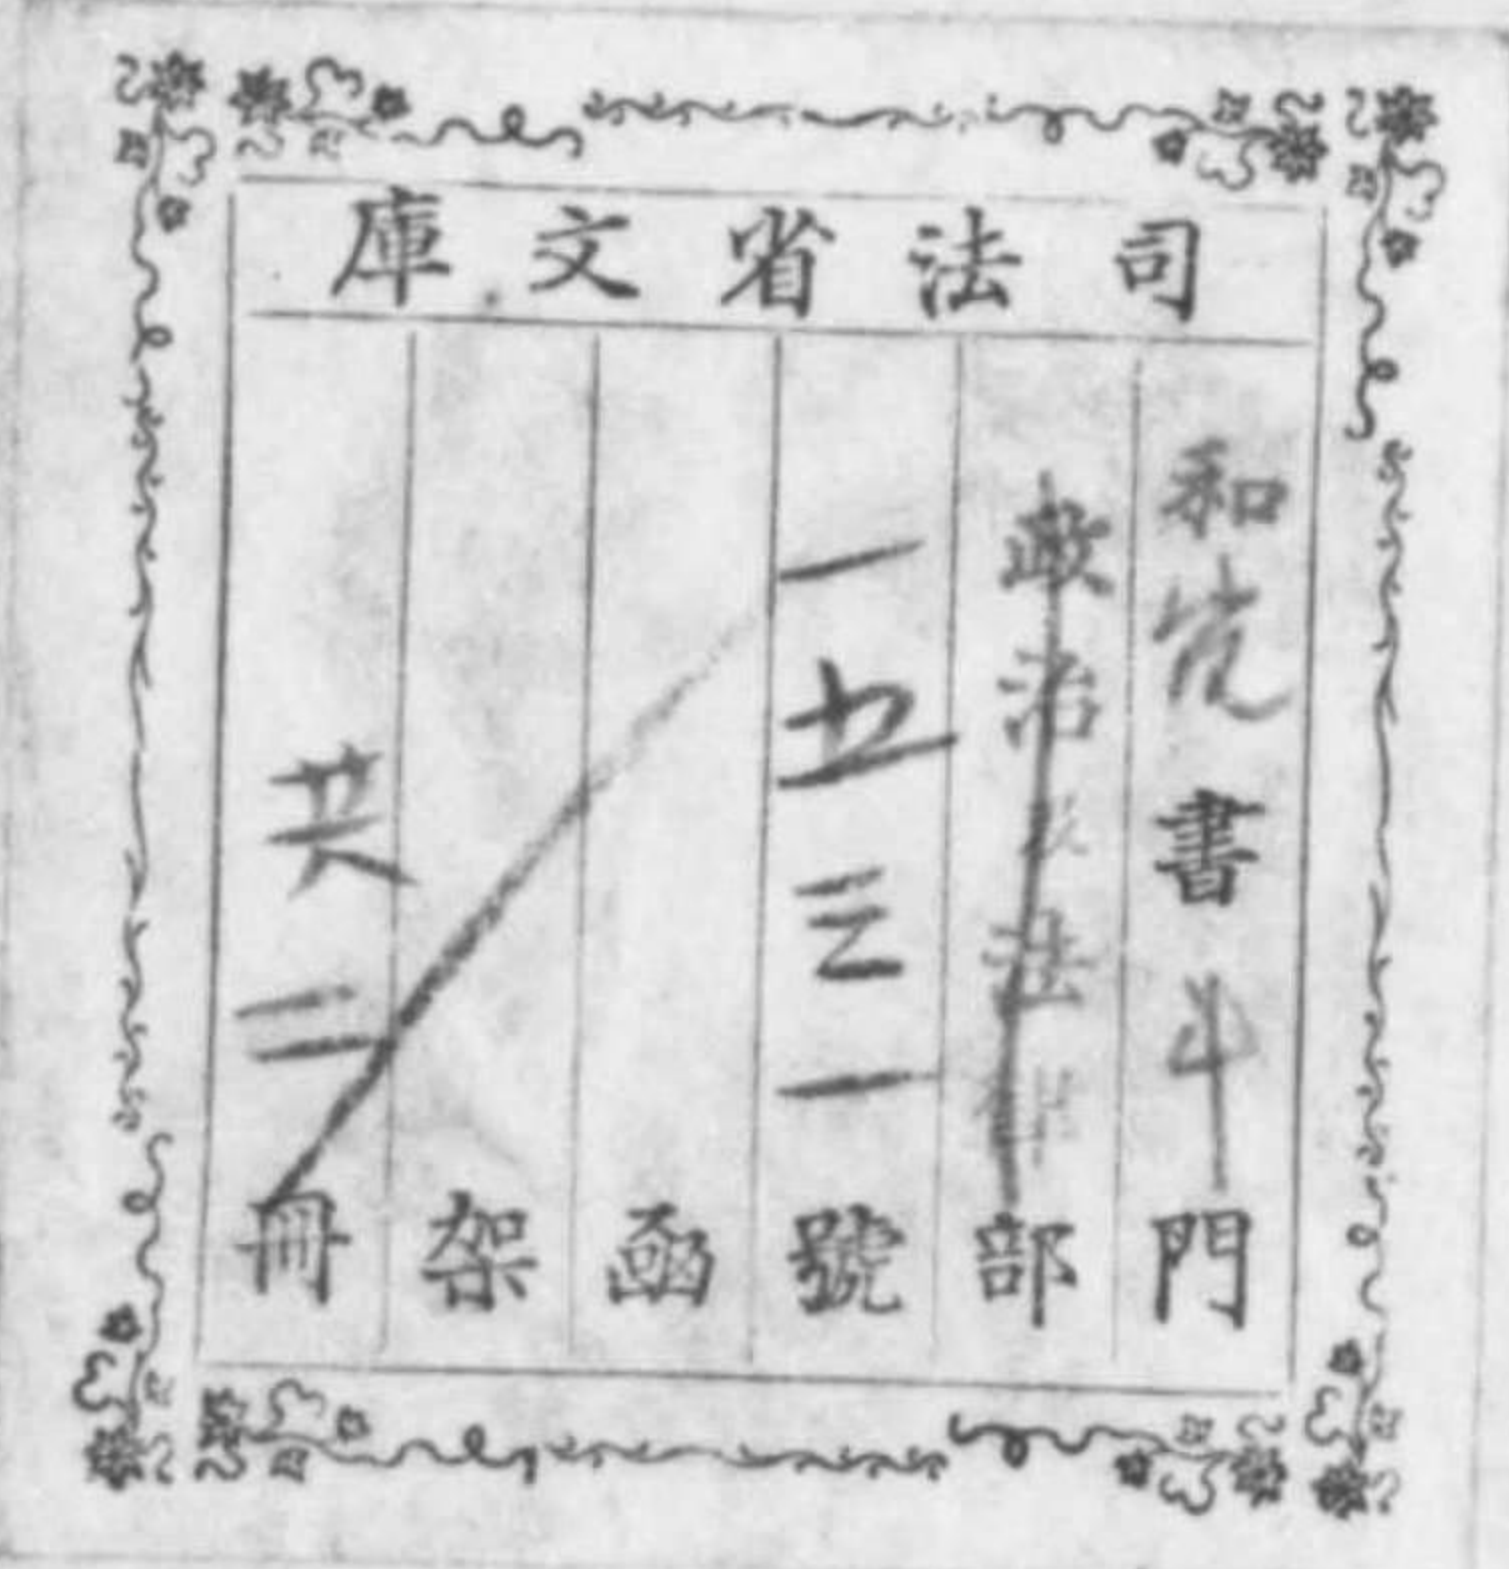 司法省文庫
和 書 門
政治 法 部
一五三一號
函
架
共二冊